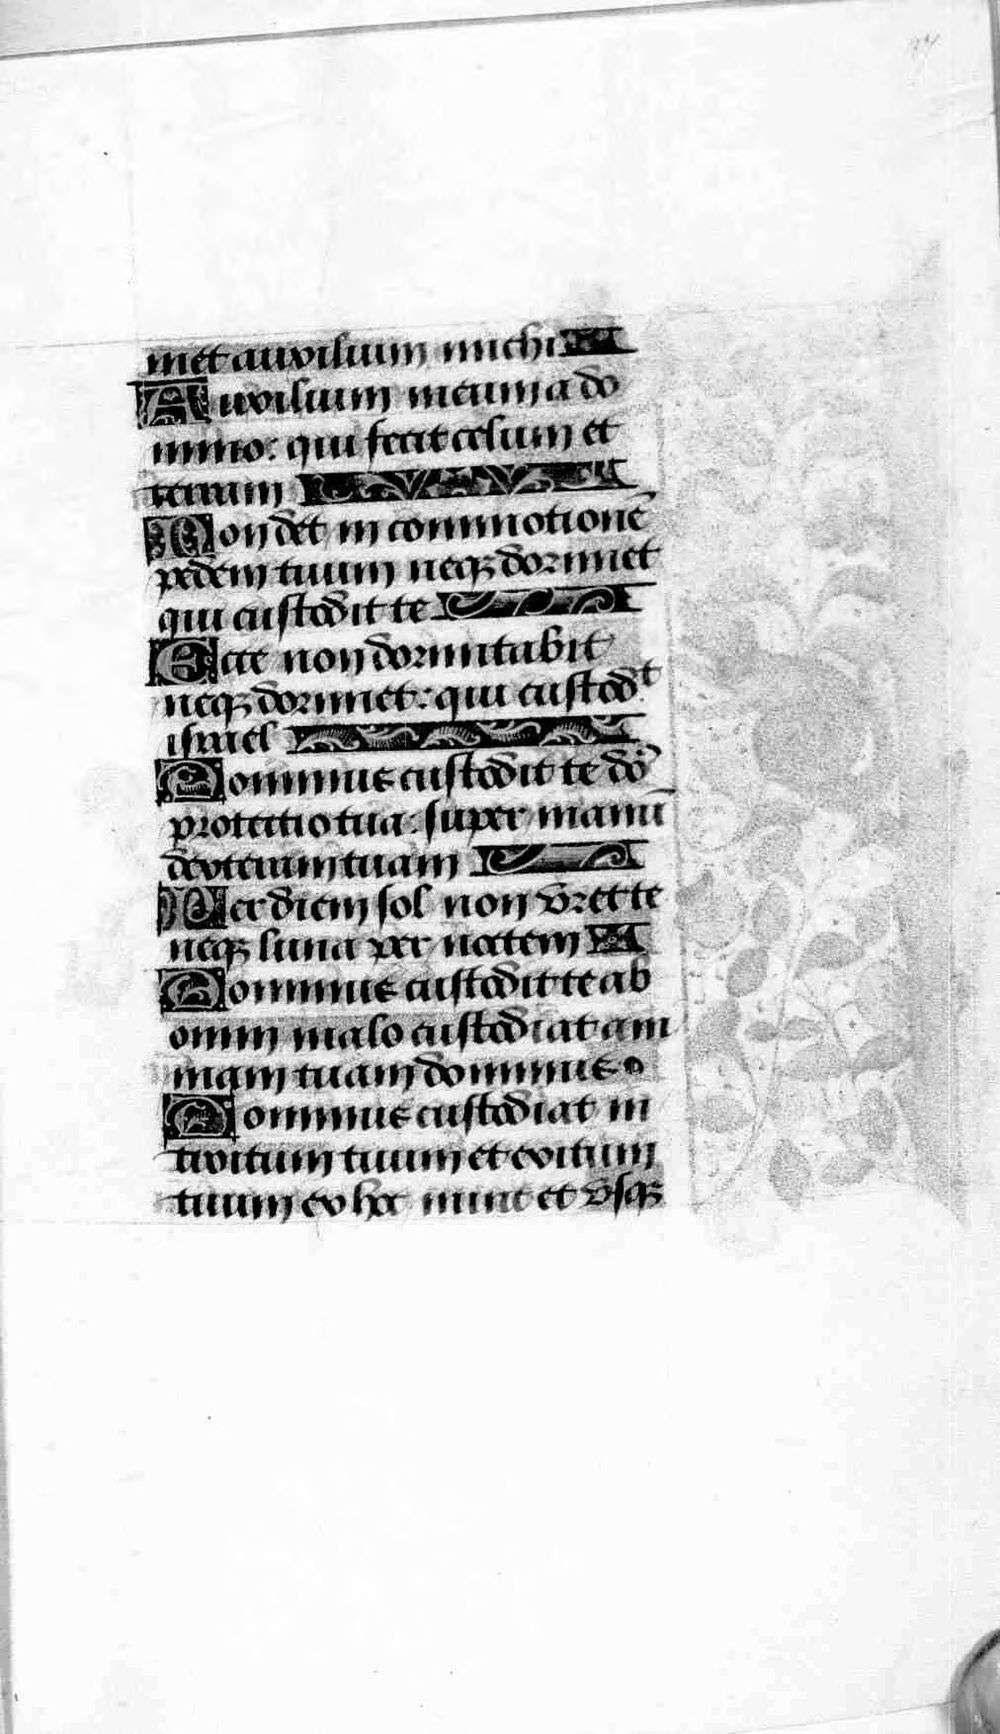 niet auxilium michi
Auxilium meum a do
mino: qui fecit celum et
terram
Non det in commotionē
pedem tuum neqꝫ dormiet
qui custodit te
Ecce non dormitabit
neqꝫ dormiet: qui custodᵗ
israel
Dominus custodit te dōs
protectio tua: super manū
dexteram tuam
Per diem sol non vret te
neqꝫ luna per noctem
Dominus custodit te ab
omni malo custodiat ani
mam tuam dominus
Dominus custodiat in
troitum tuum et exitum
tuum ex hoc nunc et vsqꝫ